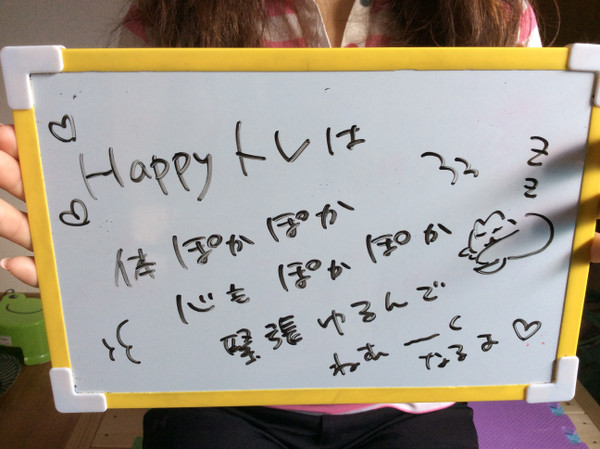 Happyトレは
zz
体ぽかぽか
心もぽかぽか
緊張ゆるんで
ねむーく
なるよ